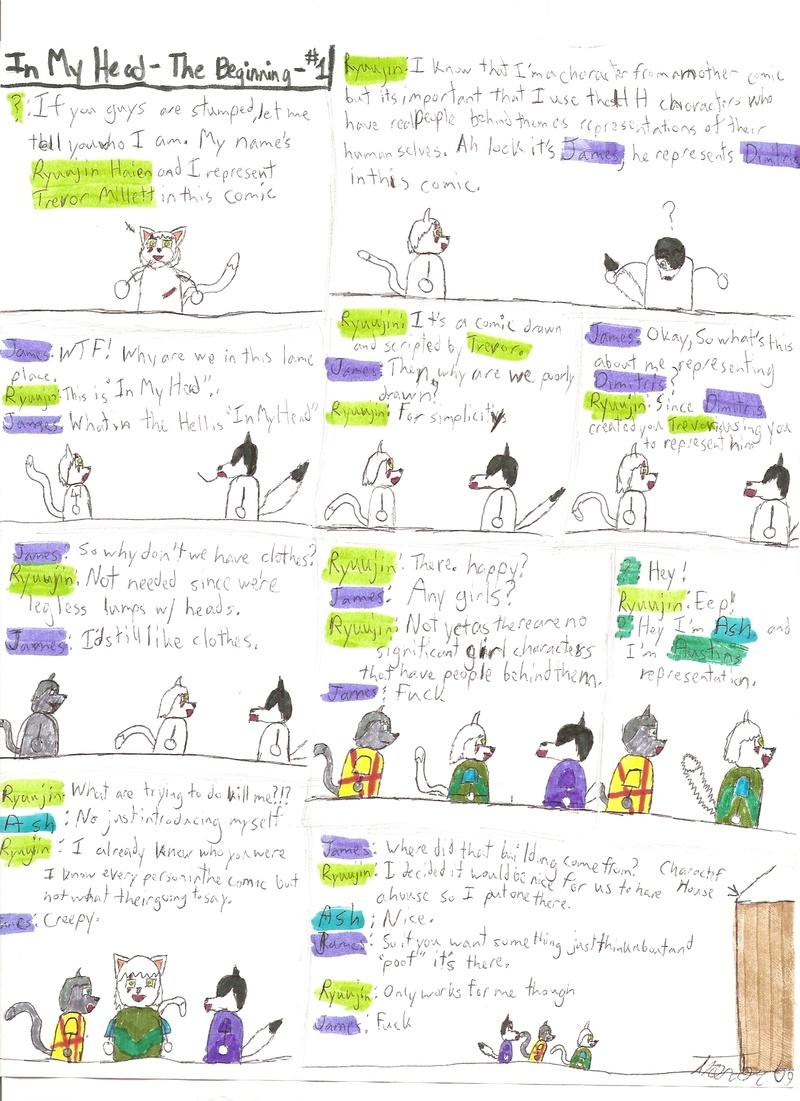 In My Head - The Beginning - #1
?: If you guys are stumped, let me
tell you who I am. My name's
Ryuujin Haien and I represent
Trevor Millett in this comic
Ryuujin: I know that I'm a character from another comic
but its important that I use that H characters who
have real people behind them as representations of their
human selves. Ah look it's James, he represents Dimitris
in this comic.
?
James: WTF! Why are we in this lame
place.
Ryuujin: This is "In My Head".
James: What in the Hell is "In My Head"
Ryuujin: It's a comic drawn
and scripted by Trevor.
James: Then, why are we poorly
drawn!
Ryuujin: For simplicity
James: Okay, So what's this
about me representing
Dimitris?
Ryuujin: Since Dimitris
created you Trevor is using you
to represent him
James: So why don't we have clothes?
Ryuujin: Not needed since we're
legless lumps w/ heads.
James: I'd still like clothes.
Ryuujin: There. happy?
James: Any girls?
Ryuujin: Not yet as there are no
significant girl characters
that have people behind them.
James: Fuck
?: Hey!
Ryuujin: Eep!
?: Hey I'm Ash and
I'm Austins
representation.
Ryuujin: What are trying to do kill me?!?
Ash: No just introducing myself
Ryuujin: I already knew who you were
I know every person in the comic but
not what their going to say.
James: Creepy.
James: Where did that building come from?
Ryuujin: I decided it would be nice for us to have
a house so I put one there.
Ash: Nice.
James: So if you want something just think about and
"poof" it's there.
Ryuujin: Only works for me though
James: Fuck
House
09